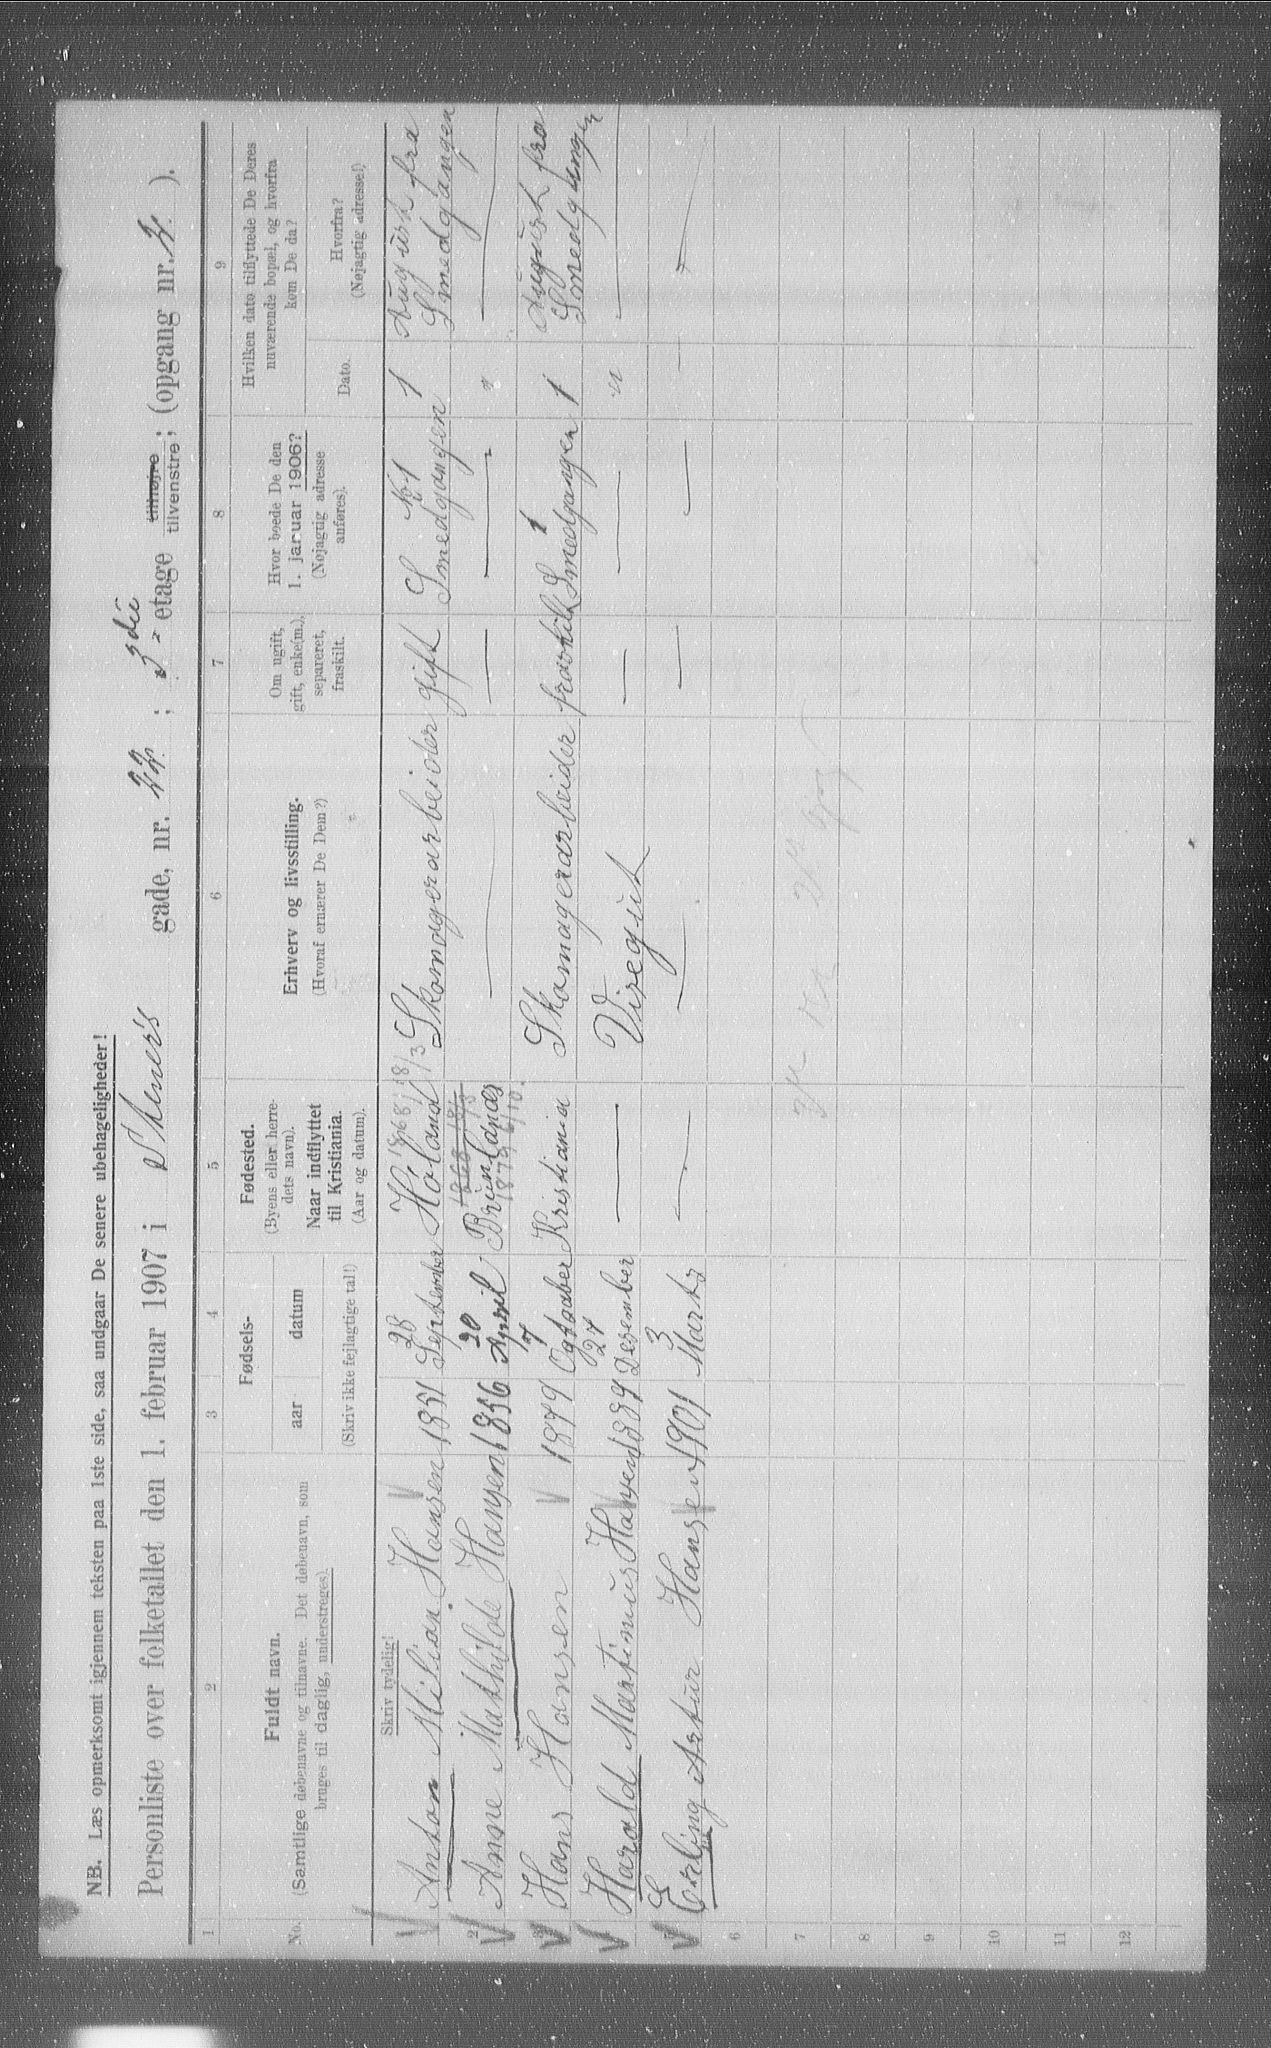 NB. Læs opmerksomt igjennem teksten paa 1ste side, saa undgaar De senere ubehageligheder!
Personliste over folketallet den 1. februar 1907 i Steners gade, nr. 22 ; 3die etage tilhøjre tilvenstre; (opgang nr. 2. ).
1 2 3 4 5 6 7 8 9
No.
Fuldt navn.
(Samtlige døbenavne og tilnavne. Det døbenavn, som
bruges til daglig, understreges).
Fødsels-
aar datum
(Skriv ikke fejlagtige tal!)
Fødested.
(Byens eller herre-
dets navn).
Naar indflyttet
til Kristiania.
(Aar og datum).
Erhverv og livsstilling.
(Hvoraf ernærer De Dem?)
Om ugift,
gift, enke(m.),
separeret,
fraskilt.
Hvor boede De den
1. januar 1906?
(Nøjagtig adresse
anføres).
Hvilken dato tilflyttede De Deres
nuværende bopæl, og hvorfra
kom De da?
Dato.
Hvorfra?
(Nøjagtig adresse!)
Skriv tydelig!
Anton Milian Hansen 1851 28 September Høland 1868 18/3 Skomagerarbeider gift No 1 Smedgangen 1 August fra Smedgangen
2 Anne Mathilde Hansen 1856 20 April Brunlanæs 1868 18/3 1875 6/10. — — — " —
3 Hans Hansen 1879 7 Ogtoaber Kristiania Skomagerarbeider fraskilt 1 Smedgangen 1 August fra Smedgangen
Harald Martinius Hansen 1889 27 Desember — Visegut — — " —
5 Erling Artur Hansen 1901 3 Marts — — — — —
6
7
8
9
10
11
12